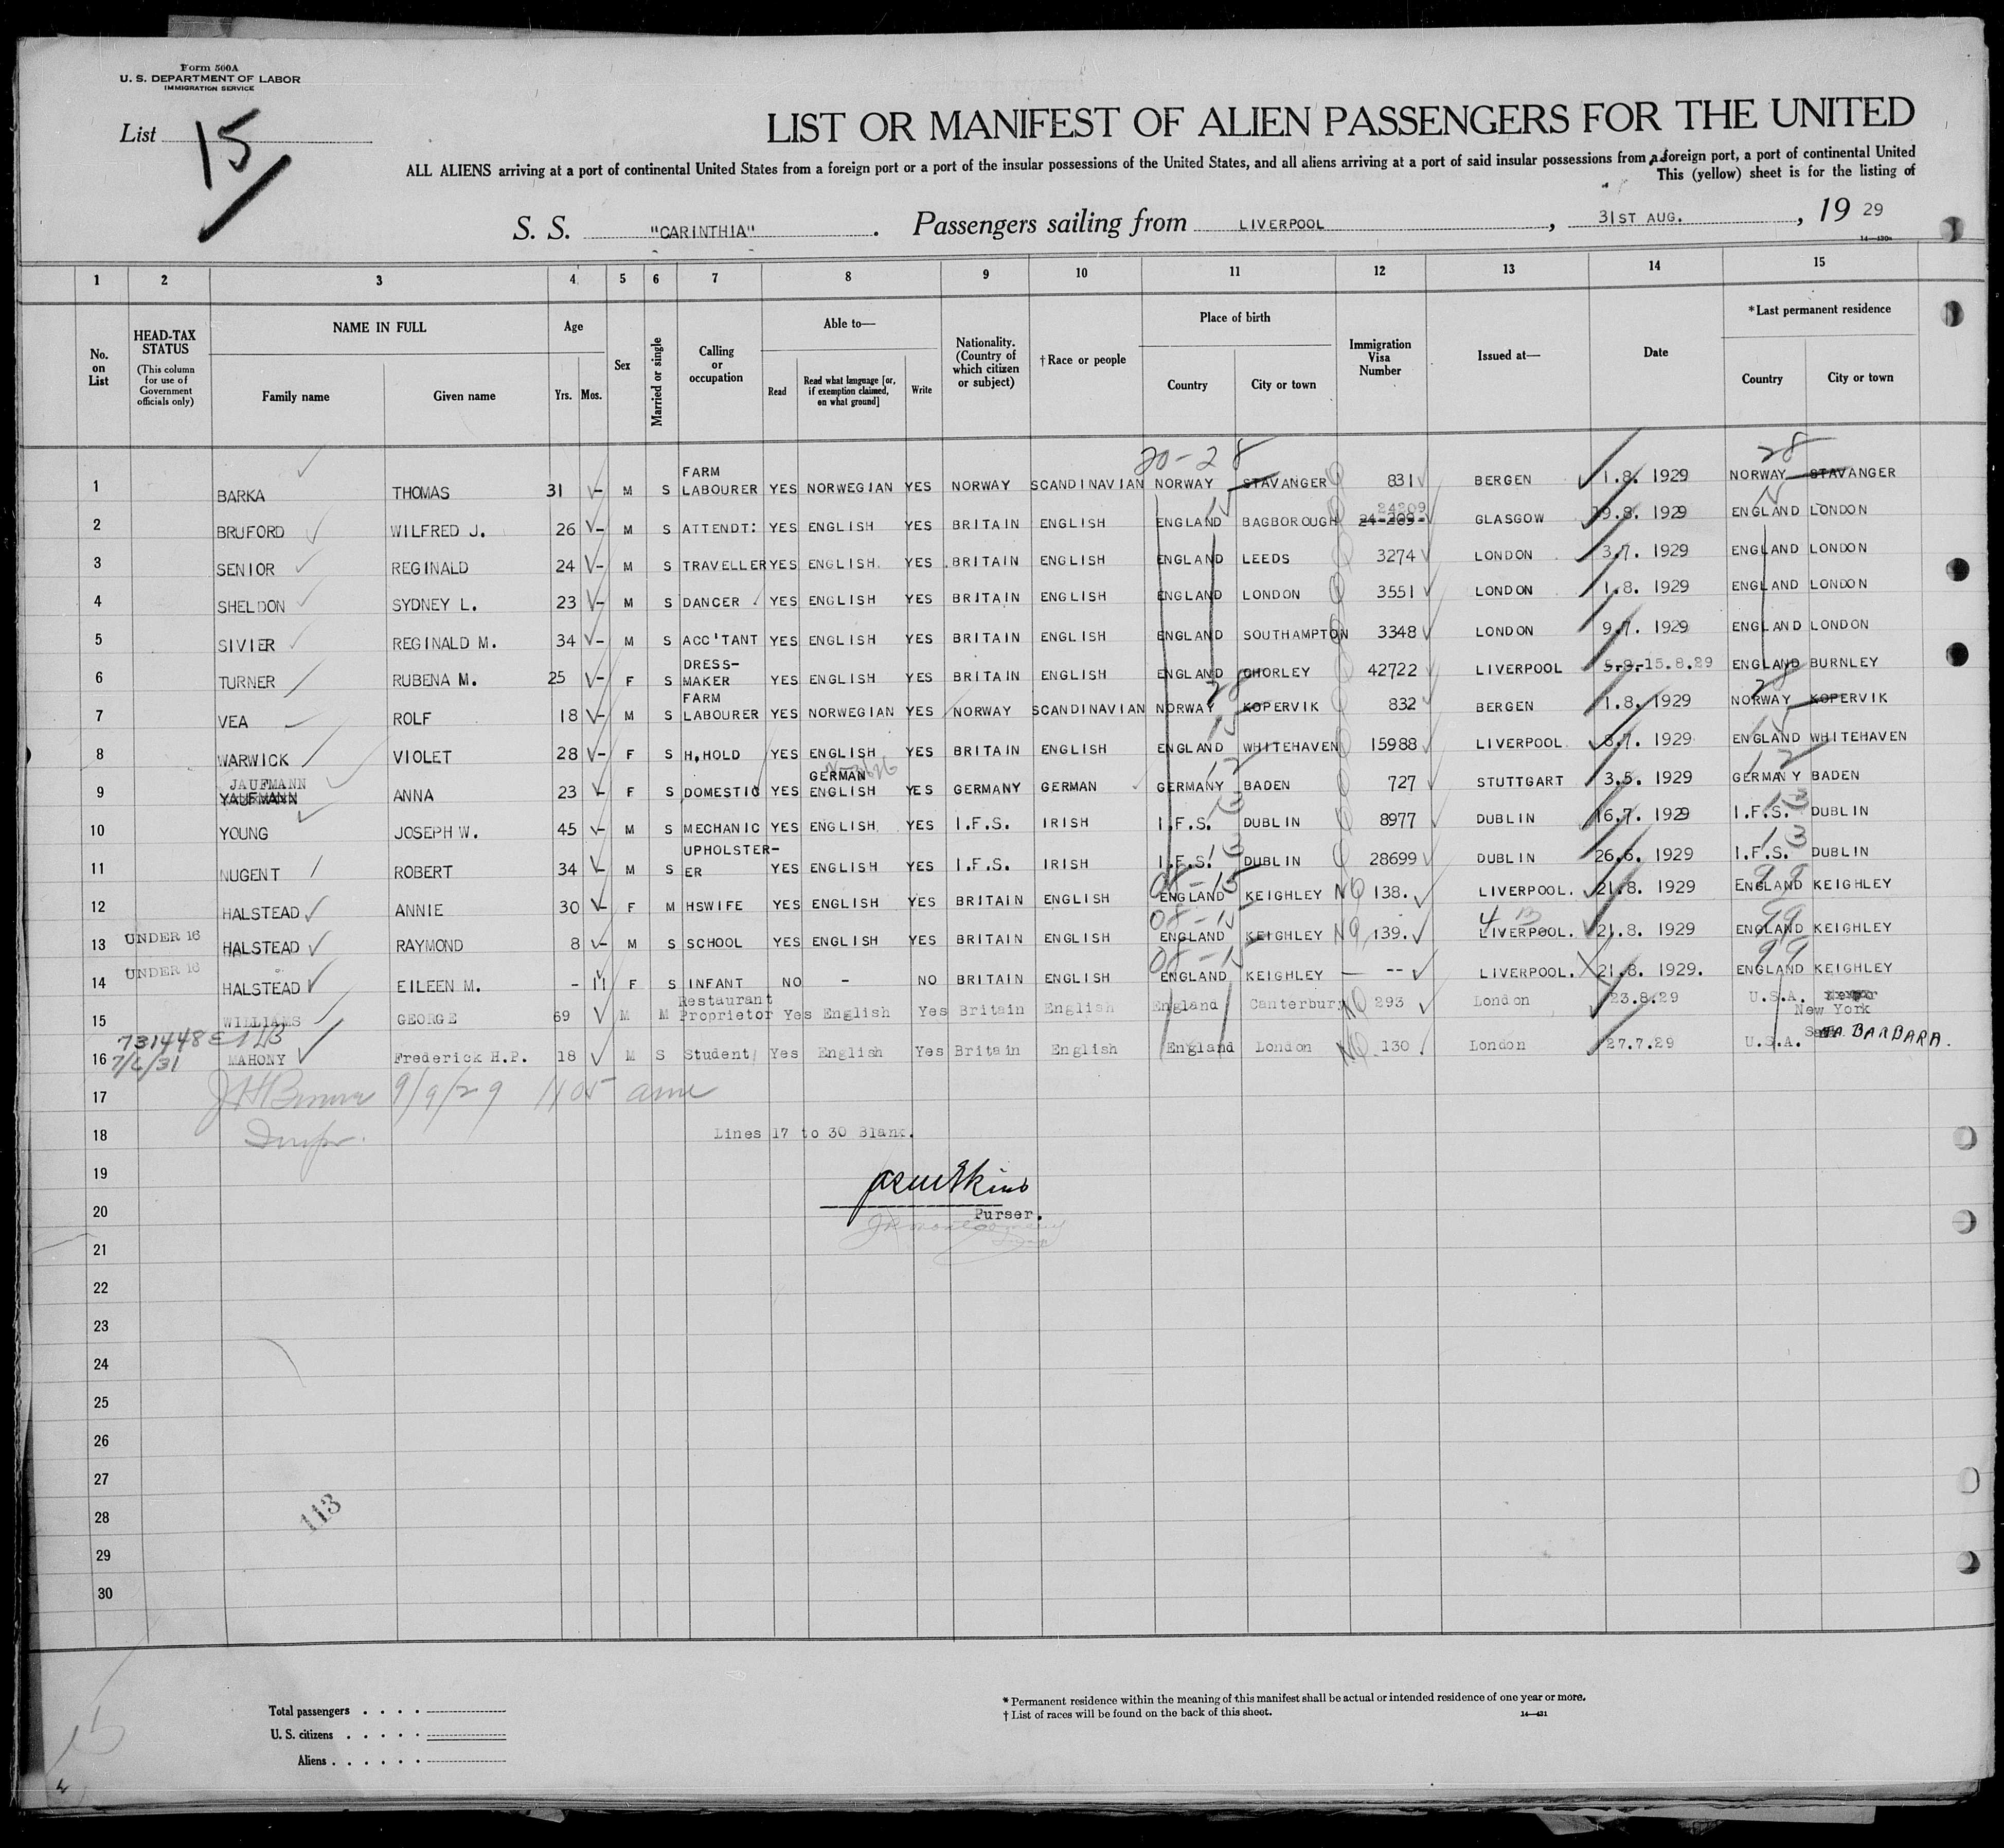 Form 500A
U. S. DEPARTMENT OF LABOR
IMMIGRATION SERVICE
List 15
LIST OR MANIFEST OF ALIEN PASSENGERS FOR THE UNITED
ALL ALIENS arriving at a port of continental United States from a foreign port or a port of the insular possessions of the United States, and all aliens arriving at a port of said insular possessions from a foreign port, a port of continental United
This (yellow) sheet is for the listing of
S. S. "CARINTHIA". Passengers sailing from LIVERPOOL, 31ST AUG., 19 29
1 2 3 4 5 6 7 8 9 10 11 12 13 14 15
No. on List HEAD-TAX STATUS (This column for use of Government officials only) NAME IN FULL Family name Given name Age Yrs. Mos. Sex Married or single Calling or occupation Able to— Read Read what language [or, if exemption claimed, on what ground] Write Nationality. (Country of which citizen or subject) † Race or people Place of birth Country City or town Immigration Visa Number Issued at— Date * Last permanent residence Country City or town
20-28 28
1 BARKA THOMAS 31 - M S FARM LABOURER YES NORWEGIAN YES NORWAY SCANDINAVIAN NORWAY STAVANGER 831 BERGEN 1.8. 1929 NORWAY STAVANGER
2 BRUFORD WILFRED J. 26 - M S ATTENDT: YES ENGLISH YES BRITAIN ENGLISH ENGLAND BAGBOROUGH 24209 24-209- GLASGOW 19.8. 1929 ENGLAND LONDON
3 SENIOR REGINALD 24 - M S TRAVELLER YES ENGLISH. YES BRITAIN ENGLISH ENGLAND LEEDS 3274 LONDON 3.7. 1929 ENGLAND LONDON
4 SHELDON SYDNEY L. 23 - M S DANCER YES ENGLISH YES BRITAIN ENGLISH ENGLAND LONDON 3551 LONDON 1.8. 1929 ENGLAND LONDON
5 SIVIER REGINALD M. 34 - M S ACC'TANT YES ENGLISH YES BRITAIN ENGLISH ENGLAND SOUTHAMPTON 3348 LONDON 9.7. 1929 ENGLAND LONDON
6 TURNER RUBENA M. 25 - F S DRESS-MAKER YES ENGLISH YES BRITAIN ENGLISH ENGLAND CHORLEY 42722 LIVERPOOL 5-8-15.8.29 ENGLAND BURNLEY
7 VEA ROLF 18 - M S FARM LABOURER YES NORWEGIAN YES NORWAY SCANDINAVIAN NORWAY KOPERVIK 832 BERGEN 1.8. 1929 NORWAY KOPERVIK
8 WARWICK VIOLET 28 - F S H.HOLD YES ENGLISH YES BRITAIN ENGLISH ENGLAND WHITEHAVEN 15988 LIVERPOOL 8.7. 1929 ENGLAND WHITEHAVEN
9 JAUFMANN YAUFMANN ANNA 23 - F S DOMESTIC YES GERMAN ENGLISH YES GERMANY GERMAN GERMANY BADEN 727 STUTTGART 3.5. 1929 GERMANY BADEN
10 YOUNG JOSEPH W. 45 - M S MECHANIC YES ENGLISH YES I.F.S. IRISH I.F.S. DUBLIN 8977 DUBLIN 16.7. 1929 I.F.S. DUBLIN
11 NUGENT ROBERT 34 - M S UPHOLSTER-ER YES ENGLISH YES I.F.S. IRISH I.F.S. DUBLIN 28699 DUBLIN 26.6. 1929 I.F.S. DUBLIN
12 HALSTEAD ANNIE 30 - F M HSWIFE YES ENGLISH YES BRITAIN ENGLISH ENGLAND KEIGHLEY NQ 138. LIVERPOOL. 21.8. 1929 ENGLAND KEIGHLEY
13 UNDER 16 HALSTEAD RAYMOND 8 - M S SCHOOL YES ENGLISH YES BRITAIN ENGLISH ENGLAND KEIGHLEY NQ 139. LIVERPOOL. 21.8. 1929 ENGLAND KEIGHLEY
14 UNDER 16 HALSTEAD EILEEN M. - 11 F S INFANT NO - NO BRITAIN ENGLISH ENGLAND KEIGHLEY -- LIVERPOOL. 21.8. 1929. ENGLAND KEIGHLEY
15 WILLIAMS GEORGE 69 M M Restaurant Proprietor Yes English Yes Britain English England Canterbury NQ 293 London 23.8.29 U.S.A. New York
731448
7/6/31
16 MAHONY Frederick H.P. 18 M S Student Yes English Yes Britain English England London NQ 130 London 27.7.29 U.S.A. STA. BARBARA.
17 9/9/29 1105
18 Lines 17 to 30 Blank.
19
20 Purser.
21
22
23
24
25
26
27
28 113
29
30
Total passengers . . . .
U. S. citizens . . . . .
Aliens . . . . . .
* Permanent residence within the meaning of this manifest shall be actual or intended residence of one year or more.
† List of races will be found on the back of this sheet. 14—431